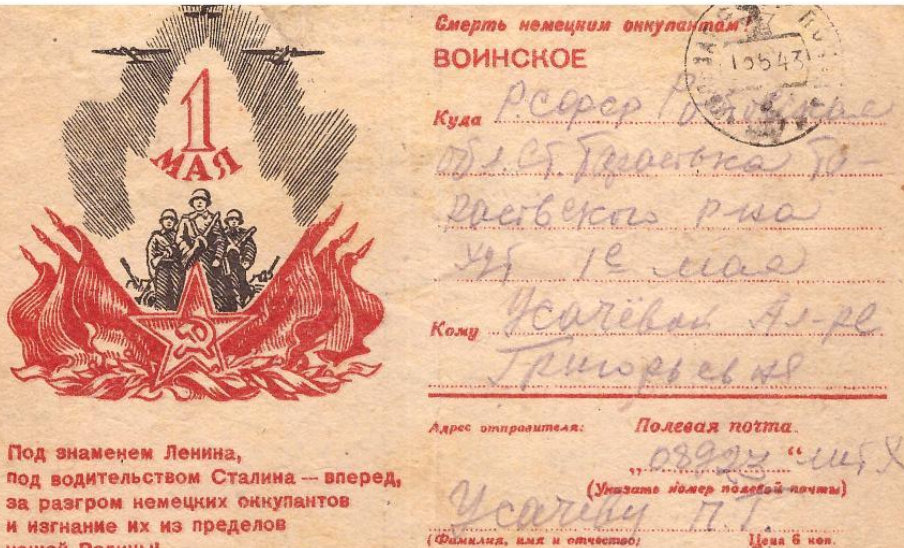 1
МАЯ
Под знаменем Ленина,
под водительством Сталина — вперед,
за разгром немецких оккупантов
и изгнание их из пределов
нашей Родины!
Смерть немецким оккупантам!
ВОИНСКОЕ
15 5 43
Куда Р.С.Ф.С.Р Ростовская
обл. ст. Тарасовка Та-
расовского р-на
1е мая
Кому Усачёвой Ал-ре
Григорьевне
Адрес отправителя: Полевая почта
„08927“
(Указать номер полевой почты)
Усачёву П.Г.
(Фамилия, имя и отчество) Цена 6 коп.